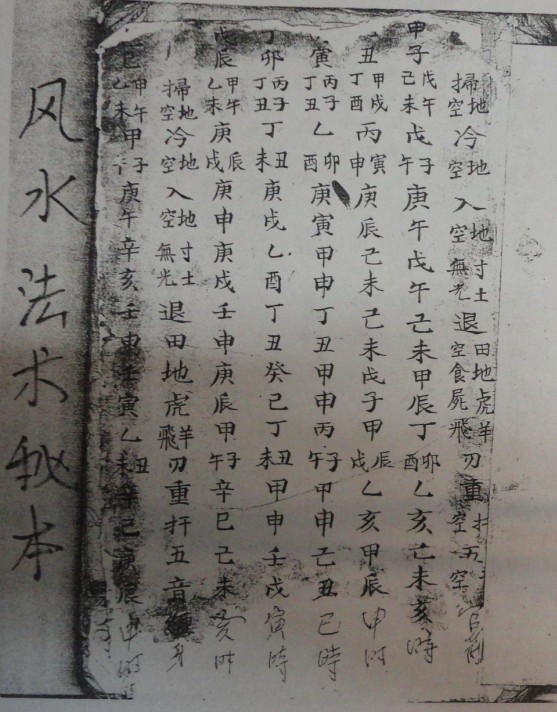 掃地空冷地空入地空寸土無光退田地空虎食屍羊飛刃重扦空五空
甲子戊午己未戊子午庚午戊午己未甲辰丁卯酉乙亥己未亥時
丑甲戌丁酉丙寅申庚辰己未己未戊子甲辰戌乙亥甲辰申时
寅丙子丁丑乙卯酉庚寅甲申丁丑甲申丙子午甲申己丑巳時
丁卯丙子丁丑丁丑未庚戌乙酉丁丑癸己丁丑未甲申壬戌寅時
戊辰甲午乙未庚辰戌庚申庚戌壬申庚辰甲子午辛巳己未亥时
掃地空冷地空入地空寸土無光退田地虎羊飛刃重扦五音纏身
乙未甲午甲子庚午辛亥壬申壬寅乙丑未辛巳庚辰申时
风水法术秘本